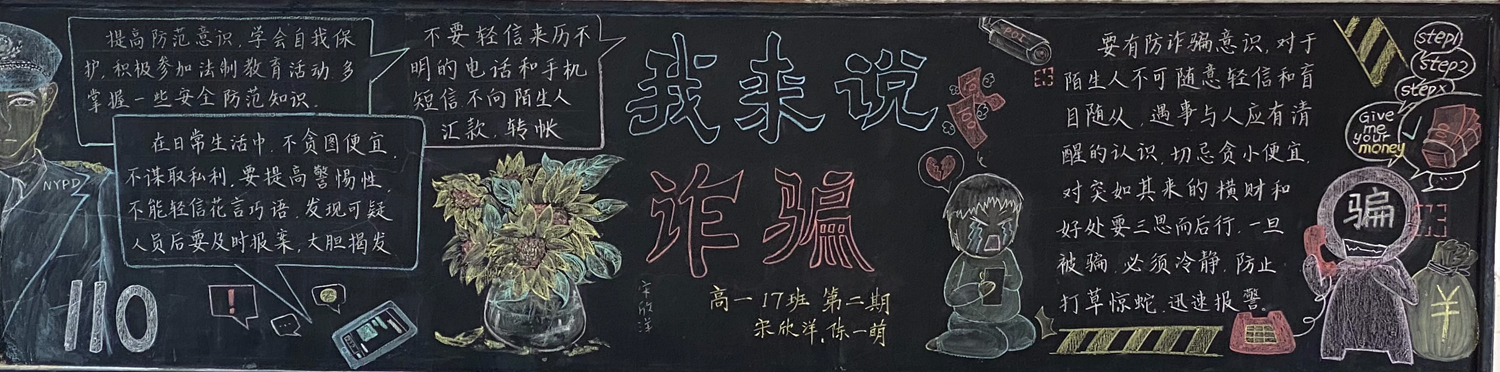 提高防范意识，学会自我保
护，积极参加法制教育活动多
掌握一些安全防范知识．
不要轻信来历不
明的电话和手机
短信不向陌生人
汇款、转帐
在日常生活中，不贪图便宜，
不谋取私利，要提高警惕性，
不能轻信花言巧语，发现可疑
人员后要及时报案，大胆揭发
NYPD
110
!
我来说
诈骗
宋欣洋
高一17班 第二期
宋欣洋、陈一萌
要有防诈骗意识，对于
陌生人不可随意轻信和盲
目随从，遇事与人应有清
醒的认识，切忌贪小便宜，
对突如其来的横财和
好处要三思而后行，一旦
被骗，必须冷静，防止
打草惊蛇，迅速报警．
step1
step2
stepx
Give
me
your
money
骗
¥